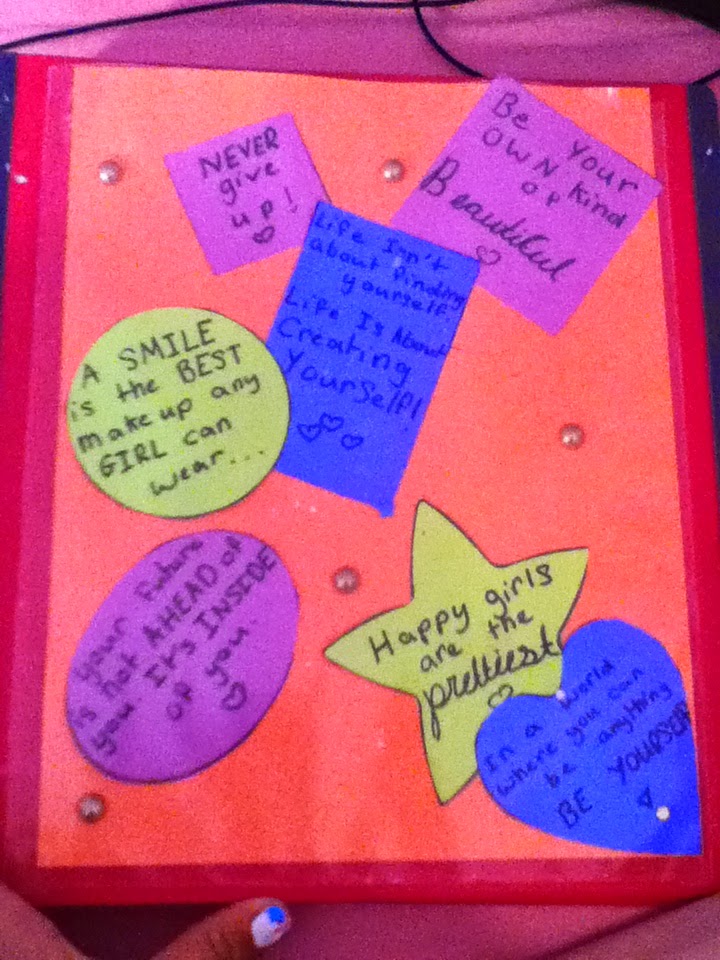 NEVER
give
up!
Be Your
OWN kind
OF
Beautiful
Life Isn't
about finding
yourself
Life Is About
Creating
Yourself!
A SMILE
is the BEST
makeup any
GIRL can
wear...
your future
is not AHEAD OF
you It's INSIDE
of you.
Happy girls
are the
prettiest
In a world
where you can
be anything
BE YOURSELF